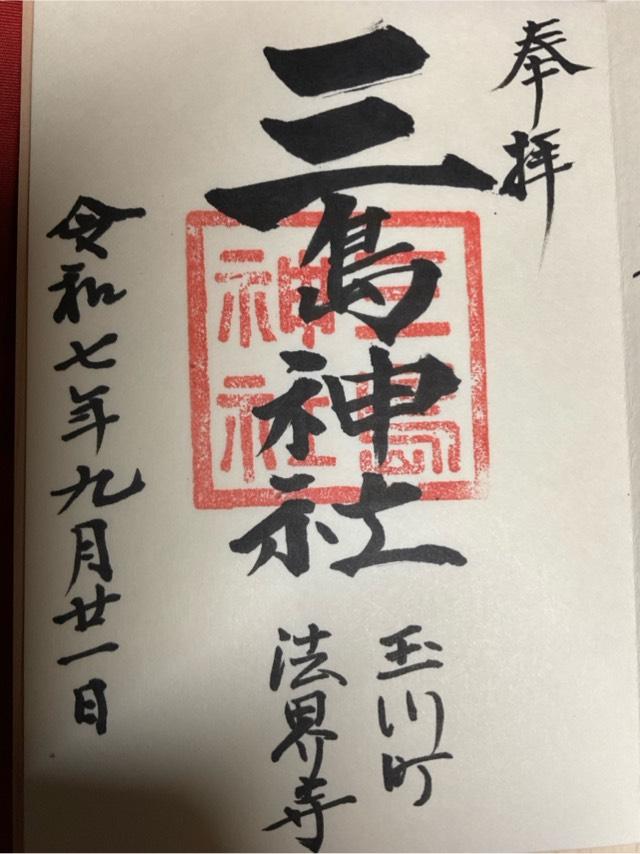 奉拝
三島神社
三島
神社
玉川町
法界寺
令和七年九月廿一日